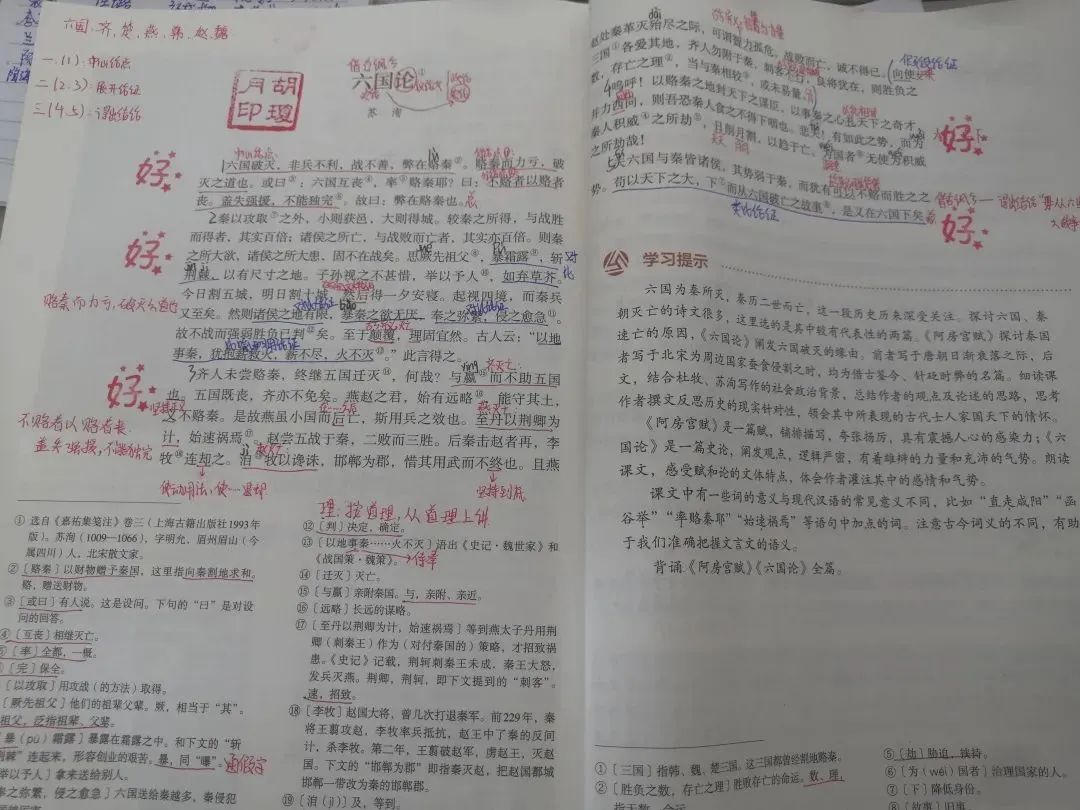 六国、齐、楚、燕、韩、赵、魏
一.(1):中心论点
二(2.3):展开论证
三(4.5):得出结论
胡瑷月印
借古讽今
六国论①
苏洵
好
六国破灭,非兵不利,战不善,弊在赂秦②。赂秦而力亏,破
灭之道也。或曰③:六国互丧④,率⑤赂秦耶?曰:不赂者以赂者
丧。盖失强援,不能独完⑥。故曰:弊在赂秦也。
2秦以攻取⑦之外,小则获邑,大则得城。较秦之所得,与战胜
而得者,其实百倍;诸侯之所亡,与战败而亡者,其实亦百倍。则秦
好
之所大欲,诸侯之所大患,固不在战矣。思厥先祖父⑧,暴霜露⑨,斩
荆棘,以有尺寸之地。子孙视之不甚惜,举以予人⑩,如弃草芥。
今日割五城,明日割十城,然后得一夕安寝。起视四境,而秦兵
赂秦而力亏,破灭之道也
又至矣。然则诸侯之地有限,暴秦之欲无厌,奉之弥繁,侵之愈急⑪。
故不战而强弱胜负已判⑫矣。至于颠覆,理固宜然。古人云:“以地
事秦,犹抱薪救火,薪不尽,火不灭⑬。”此言得之。
好
3齐人未尝赂秦,终继五国迁灭⑭,何哉?与嬴⑮而不助五国
也。五国既丧,齐亦不免矣。燕赵之君,始有远略⑯,能守其土,
义不赂秦。是故燕虽小国而后亡,斯用兵之效也。至丹以荆卿为
不赂者以赂者丧
计,始速祸焉⑰。赵尝五战于秦,二败而三胜。后秦击赵者再,李
盖失强援,不能独完
牧⑱连却之。洎⑲牧以谗诛,邯郸为郡,惜其用武而不终也。且燕
使动用法,使…退却
坚持到底
理:按道理,从道理上讲
① 选自《嘉祐集笺注》卷三(上海古籍出版社1993年
版)。苏洵(1009—1066),字明允,眉州眉山(今
属四川)人,北宋散文家。
②〔赂秦〕以财物赠予秦国,这里指向秦割地求和。
赂,赠送财物。
③〔或曰〕有人说。这是设问。下句的“曰”是对设
问的回答。
④〔互丧〕相继灭亡。
⑤〔率〕全都,一概。
〔完〕保全。
〔以攻取〕用攻战(的方法)取得。
〔厥先祖父〕他们的祖辈父辈。厥,相当于“其”。
祖父,泛指祖辈、父辈。
暴(pù)霜露〕暴露在霜露之中。和下文的“斩
荆棘”连起来,形容创业的艰苦。暴,同“曝”。通假字
举以予人〕拿来送给别人。
奉之弥繁,侵之愈急〕六国送给秦越多,秦侵犯
⑫〔判〕决定,确定。
⑬〔以地事秦……火不灭〕语出《史记·魏世家》和
《战国策·魏策》。→侍奉
⑭〔迁灭〕灭亡。
⑮〔与嬴〕亲附秦国。与,亲附、亲近。
⑯〔远略〕长远的谋略。
⑰〔至丹以荆卿为计,始速祸焉〕等到燕太子丹用荆
卿(刺秦王)作为(对付秦国的)策略,才招致祸
患。《史记》记载,荆轲刺秦王未成,秦王大怒,
发兵灭燕。荆卿,荆轲,即下文提到的“刺客”。
速,招致。
⑱〔李牧〕赵国大将,曾几次打退秦军。前229年,秦
将王翦攻赵,李牧率兵抵抗,赵王中了秦的反间
计,杀李牧。第二年,王翦破赵军,虏赵王,灭赵
国。下文的“邯郸为郡”即指秦灭赵,把赵国都城
邯郸一带改为秦的邯郸郡。
⑲〔洎(jì)〕及,等到。
赵处秦革灭殆尽之际,可谓智力孤危,战败而亡,诚不得已。向使
假设论证
三国①各爱其地,齐人勿附于秦,刺客不行,良将犹在,则胜负之
数,存亡之理②,当与秦相较③,或未易量。
4呜呼!以赂秦之地封天下之谋臣,以事秦之心礼天下之奇才,
并力西向,则吾恐秦人食之不得下咽也。悲夫!有如此之势,而为
秦人积威④之所劫⑤,日削月割,以趋于亡。为国者⑥无使为积威
之所劫哉!
好
5夫六国与秦皆诸侯,其势弱于秦,而犹有可以不赂而胜之之
势。苟以天下之大,下⑦而从六国破亡之故事⑧,是又在六国下矣。
类比论证
好
学习提示
六国为秦所灭,秦历二世而亡,这一段历史历来深受关注。探讨六国、秦
朝灭亡的诗文很多,这里选的是其中较有代表性的两篇。《阿房宫赋》探讨秦国
速亡的原因,《六国论》阐发六国破灭的缘由。前者写于唐朝日渐衰落之际,后
者写于北宋为周边国家蚕食侵割之时,均为借古鉴今、针砭时弊的名篇。细读课
文,结合杜牧、苏洵写作的社会政治背景,总结作者的观点及论述的思路,思考
作者撰文反思历史的现实针对性,领会其中所表现的古代士人家国天下的情怀。
《阿房宫赋》是一篇赋,铺排描写,夸张扬厉,具有震撼人心的感染力;《六
国论》是一篇史论,阐发观点,逻辑严密,有着雄辩的力量和充沛的气势。朗读
课文,感受赋和论的文体特点,体会作者灌注其中的感情和气势。
课文中有一些词的意义与现代汉语的常见意义不同,比如“直走咸阳”“函
谷举”“率赂秦耶”“始速祸焉”等语句中加点的词。注意古今词义的不同,有助
于我们准确把握文言文的语义。
背诵《阿房宫赋》《六国论》全篇。
①〔三国〕指韩、魏、楚三国。这三国都曾经割地赂秦。
②〔胜负之数,存亡之理〕胜败存亡的命运。数,理,
指天数、命运。
⑤〔劫〕胁迫,挟持。
⑥〔为(wéi)国者〕治理国家的人。
⑦〔下〕降低身份。
⑧〔故事〕旧事。